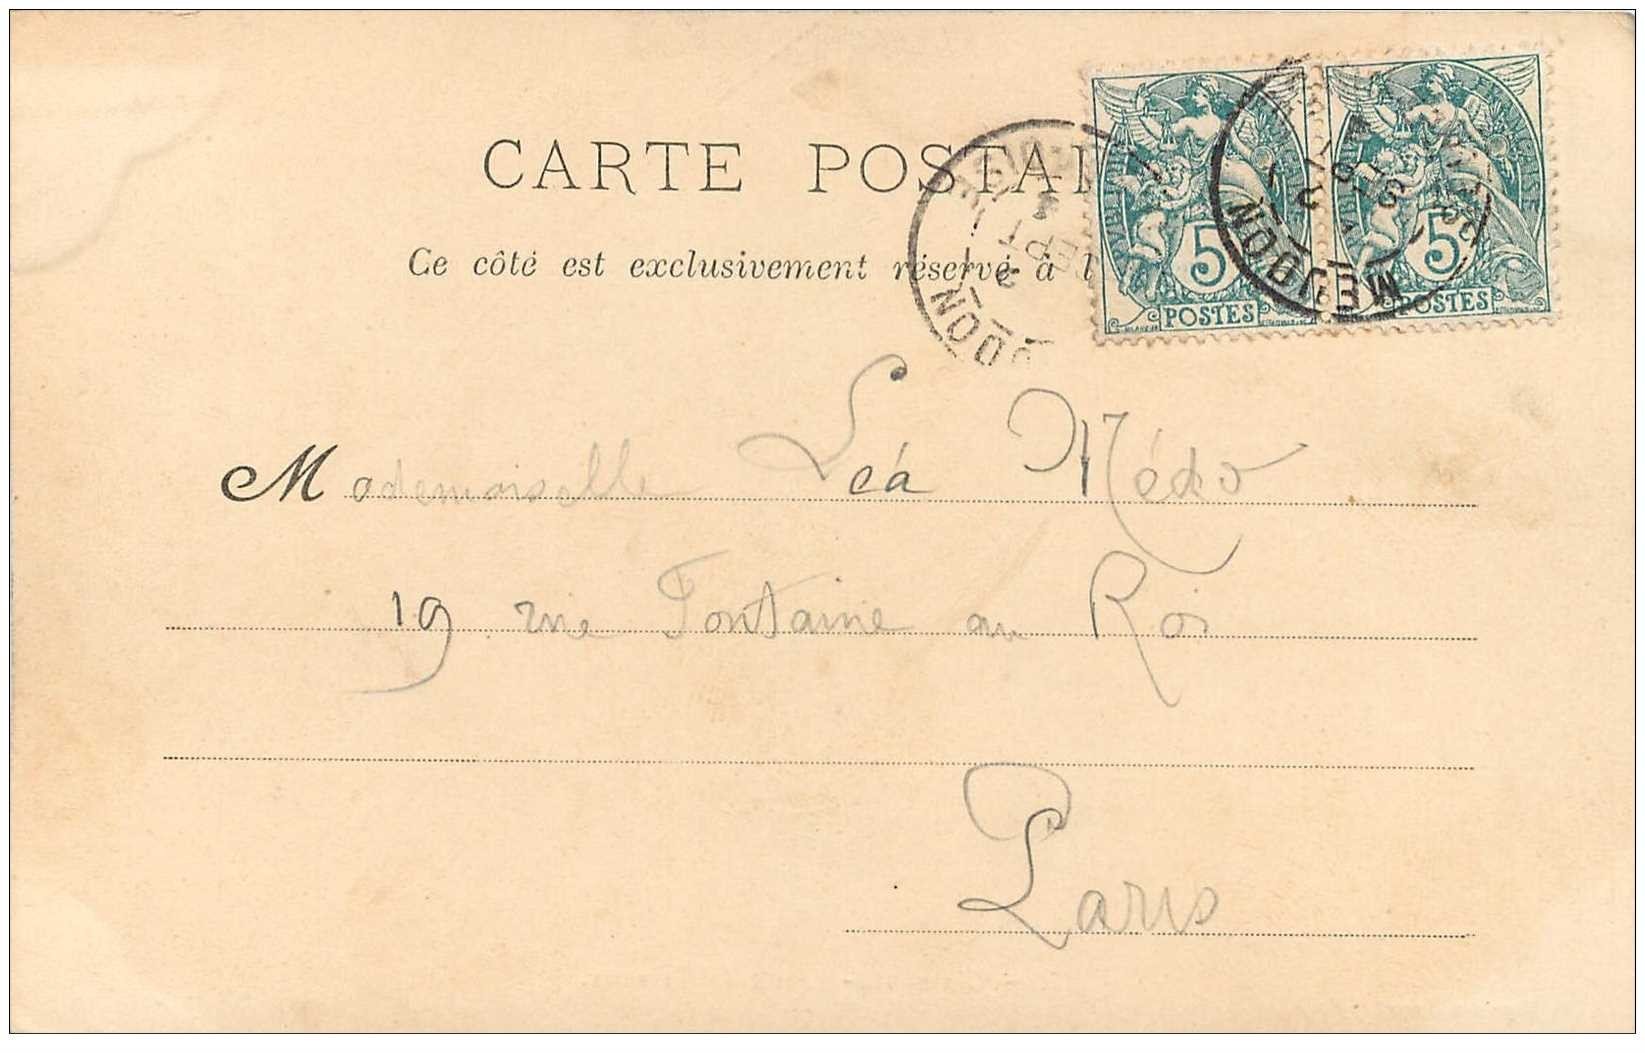 CARTE POSTAL
Ce côté est exclusivement réservé à l
RÉPUBLIQUE FRANÇAISE
5
POSTES
5
POSTES
MEUDON
Mademoiselle Léa
19 rue Fontaine au Roi
Paris